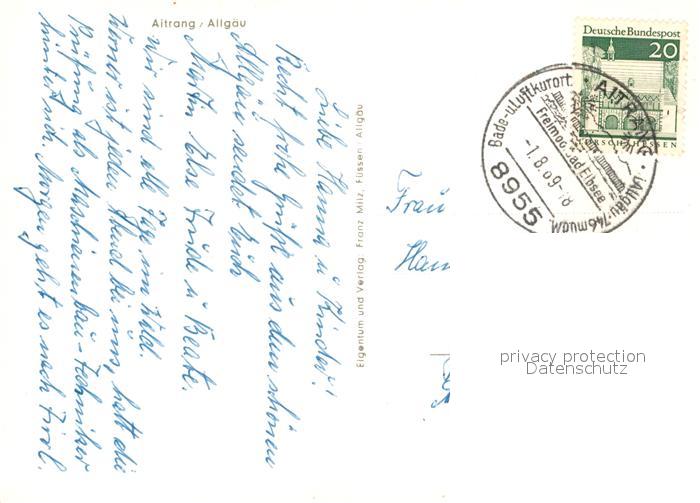 Aitrang / Allgäu
Liebe Hanna u Kinder!
Recht frohe Grüße aus dem schönen
Allgäu sendet Euch
Martin Else Trude u Beate.
Wir sind alle Tage im Wald
Werner ist jeden Abend bei uns, hatt die
Prüfung als Maschinenbau-Techniker
hinter sich. Morgen geht es nach Tirol.
Eigentum und Verlag Franz Milz, Füssen / Allgäu
Frau
Han
Deutsche Bundespost
20
LORSCH/HESSEN
Bade-u.Luftkurort.
AITRANG · (Allgäu·746müNN
Freimoorbad Elbsee
-1.8.69-18
8955
privacy protection
Datenschutz